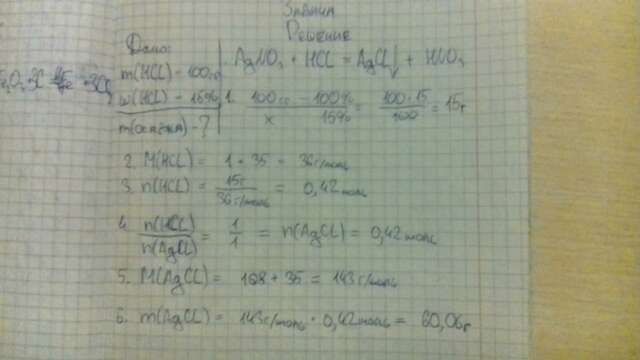 Задача
Решение
Дано:
AgNO₃ + HCl = AgCl↓ + HNO₃
m(HCl) - 100г
w(HCl) - 15%
m(осадка) - ?
1. 100г - 100%
x 15%
= 100·15 / 100 = 15г
2. M(HCl) = 1 + 35 = 36г/моль
3. n(HCl) = 15г / 36г/моль = 0,42моль
4. n(HCl) / n(AgCl) = 1 / 1 = n(AgCl) = 0,42моль
5. M(AgCl) = 108 + 35 = 143г/моль
6. m(AgCl) = 143г/моль · 0,42моль = 60,06г